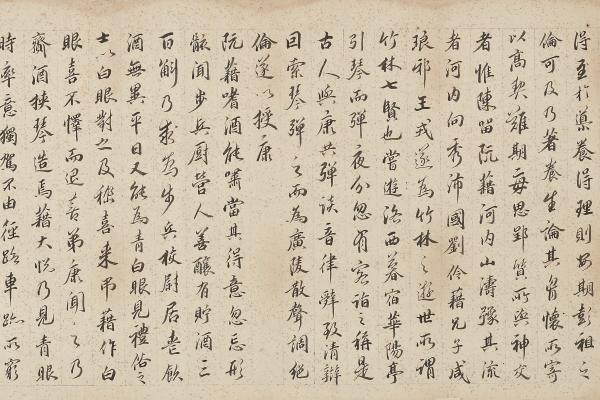 得至於導養得理則安期彭祖之
倫可及乃著養生論其胷懷所寄
以高契難期每思郢質所與神交
者惟陳留阮藉河內山濤豫其流
者河內向秀沛國劉伶藉兄子咸
琅邪王戎遂為竹林之遊世所謂
竹林七賢也嘗遊洛西暮宿華陽亭
引琴而彈夜分忽有客詣之稱是
古人與康共彈談音律辭致清辯
回索琴彈之而為廣陵散聲調絕
倫遂以授康
阮藉嗜酒能嘯當其得意忽忘形
骸聞步兵厨營人善釀有貯酒三
百斛乃求為步兵校尉居喪飲
酒無異平日又能為青白眼見禮俗之
士以白眼對之及嵇喜來弔藉作白
眼喜不懌而退喜弟康聞之乃
齎酒挾琴造焉藉大悅乃見青眼
時率意獨駕不由徑路車跡所窮